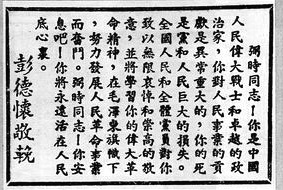 弼時同志！你是中國
人民偉大戰士和卓越的政
治家，你對人民事業的貢
獻是異常重大的，你的死
是黨和人民巨大的損失。
全國人民和全體黨員對你
致以無限哀悼和崇高的敬
意，並將學習你的偉大革
命精神，在毛澤東旗幟下
，努力發展人民革命事業
而奮鬥。弼時同志！你安
息吧！你將永遠活在人民
底心裏。
彭德懷敬輓